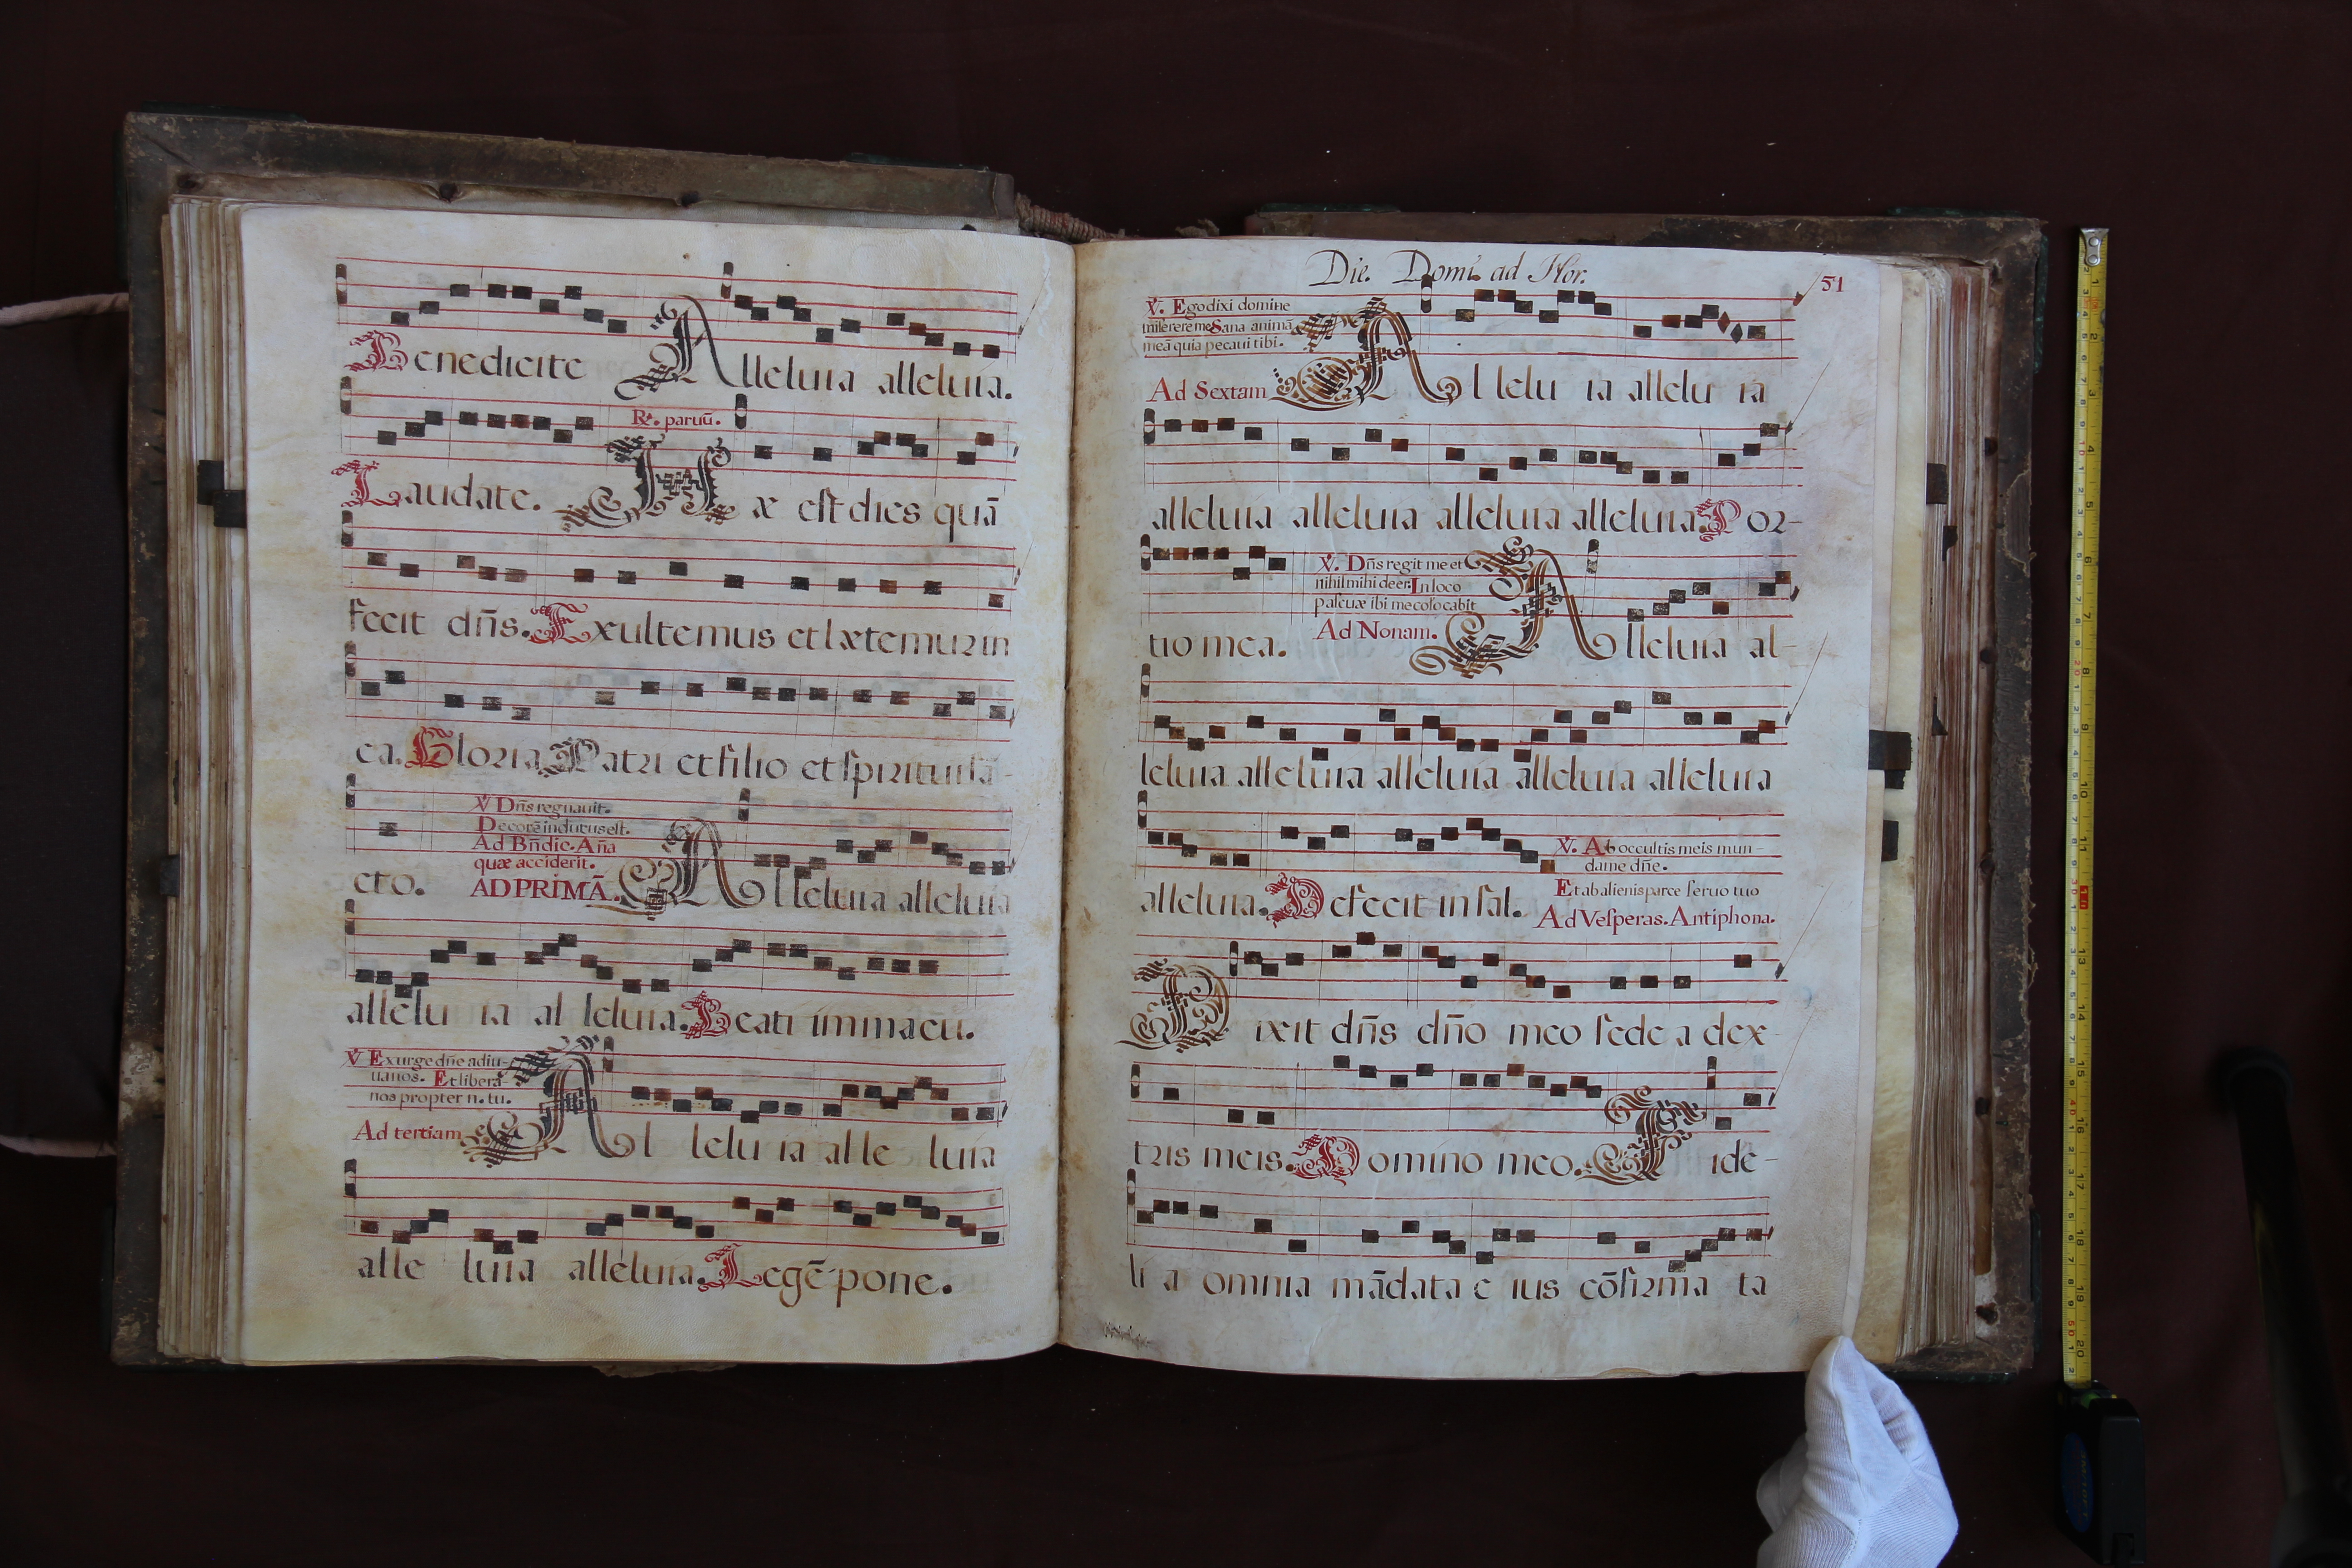 Benedicite Alleluia alleluia.
R. paruũ.
Laudate. Hæc est dies quã
fecit dñs. Exultemus et lætemur in
ea. Gloria Patri et filio et spiritui sã-
V Dñs regnauit.
Decorẽ indutus est.
Ad Bñdic. Aña
quæ acciderit.
cto. AD PRIMÃ. Alleluia alleluia
allelu ia al leluia. Beati immacu.
V Exurge dñe adiu-
uanos. Et libera
nos propter n. tu.
Ad tertiam Al lelu ia al le luia
alle luia alleluia. Legẽ pone.
Die. Domi. ad Hor.
51
V. Ego dixi domine
miserere me Sana animã
meã quia pecaui tibi.
Ad Sextam Al lelu ia allelu ia
alleluia alleluia alleluia alleluia. Por-
V. Dñs regit me et
nihil mihi deer. In loco
pascuæ ibi me colocabit
tio mea. Ad Nonam. Alleluia al-
leluia alleluia alleluia alleluia alleluia
V. Ab occultis meis mun-
dame dñe.
Et ab alienis parce seruo tuo
alleluia. Defecit in sal. Ad Vesperas. Antiphona.
Dixit dñs dño meo sede a dex-
tris meis. Domino meo. Fide-
li a omnia mãdata e ius cõfirma ta